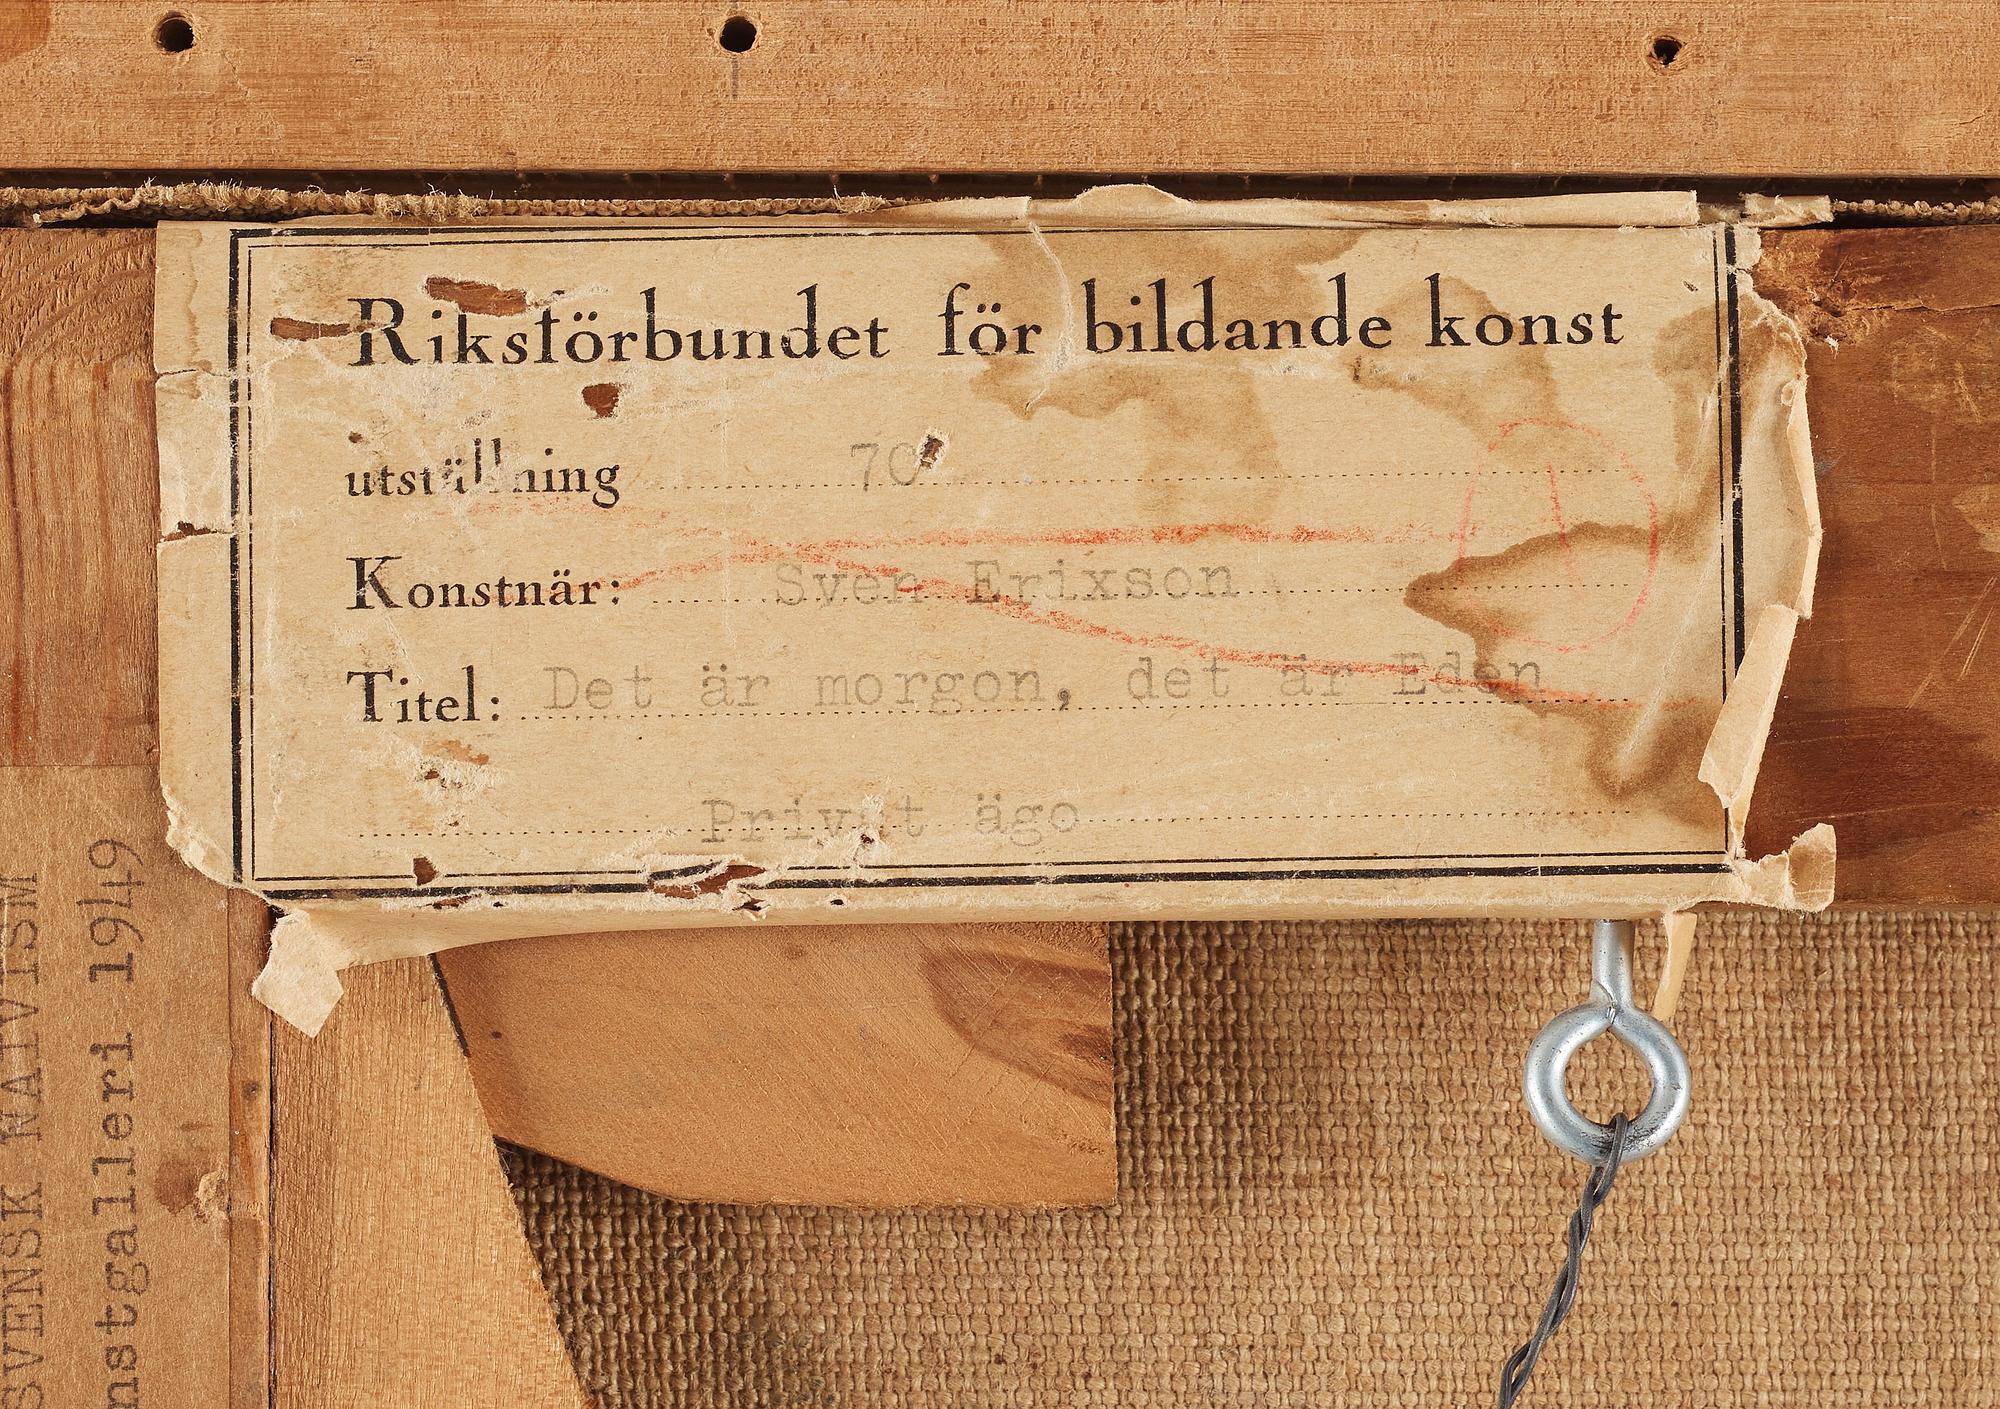 Riksförbundet för bildande konst
utställning 70
Konstnär: Sven Erixson
Titel: Det är morgon, det är Eden
Privat ägo
SVENSK NAIVISM
nstgalleri 1949